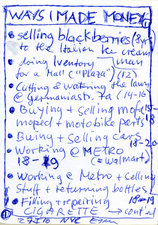 WAYS I MADE MONEY
selling blackberries (8yrs)
to the Italian Ice cream
man
doing Inventory
for a Mall ("Plaza") (12)
Cutting & watering the lawn
@ Germaniastr. 7a (14-16)
Buying + selling mofa
moped + motobike parts 15-18
Buing + Selling cars
18-20
Working @ METRO
18-19 (≈ Walmart)
Working @ Metro + selling
Stuff + returning bottles
18-19
Filling + repairing
CIGARETTE → contd
27516 NYC